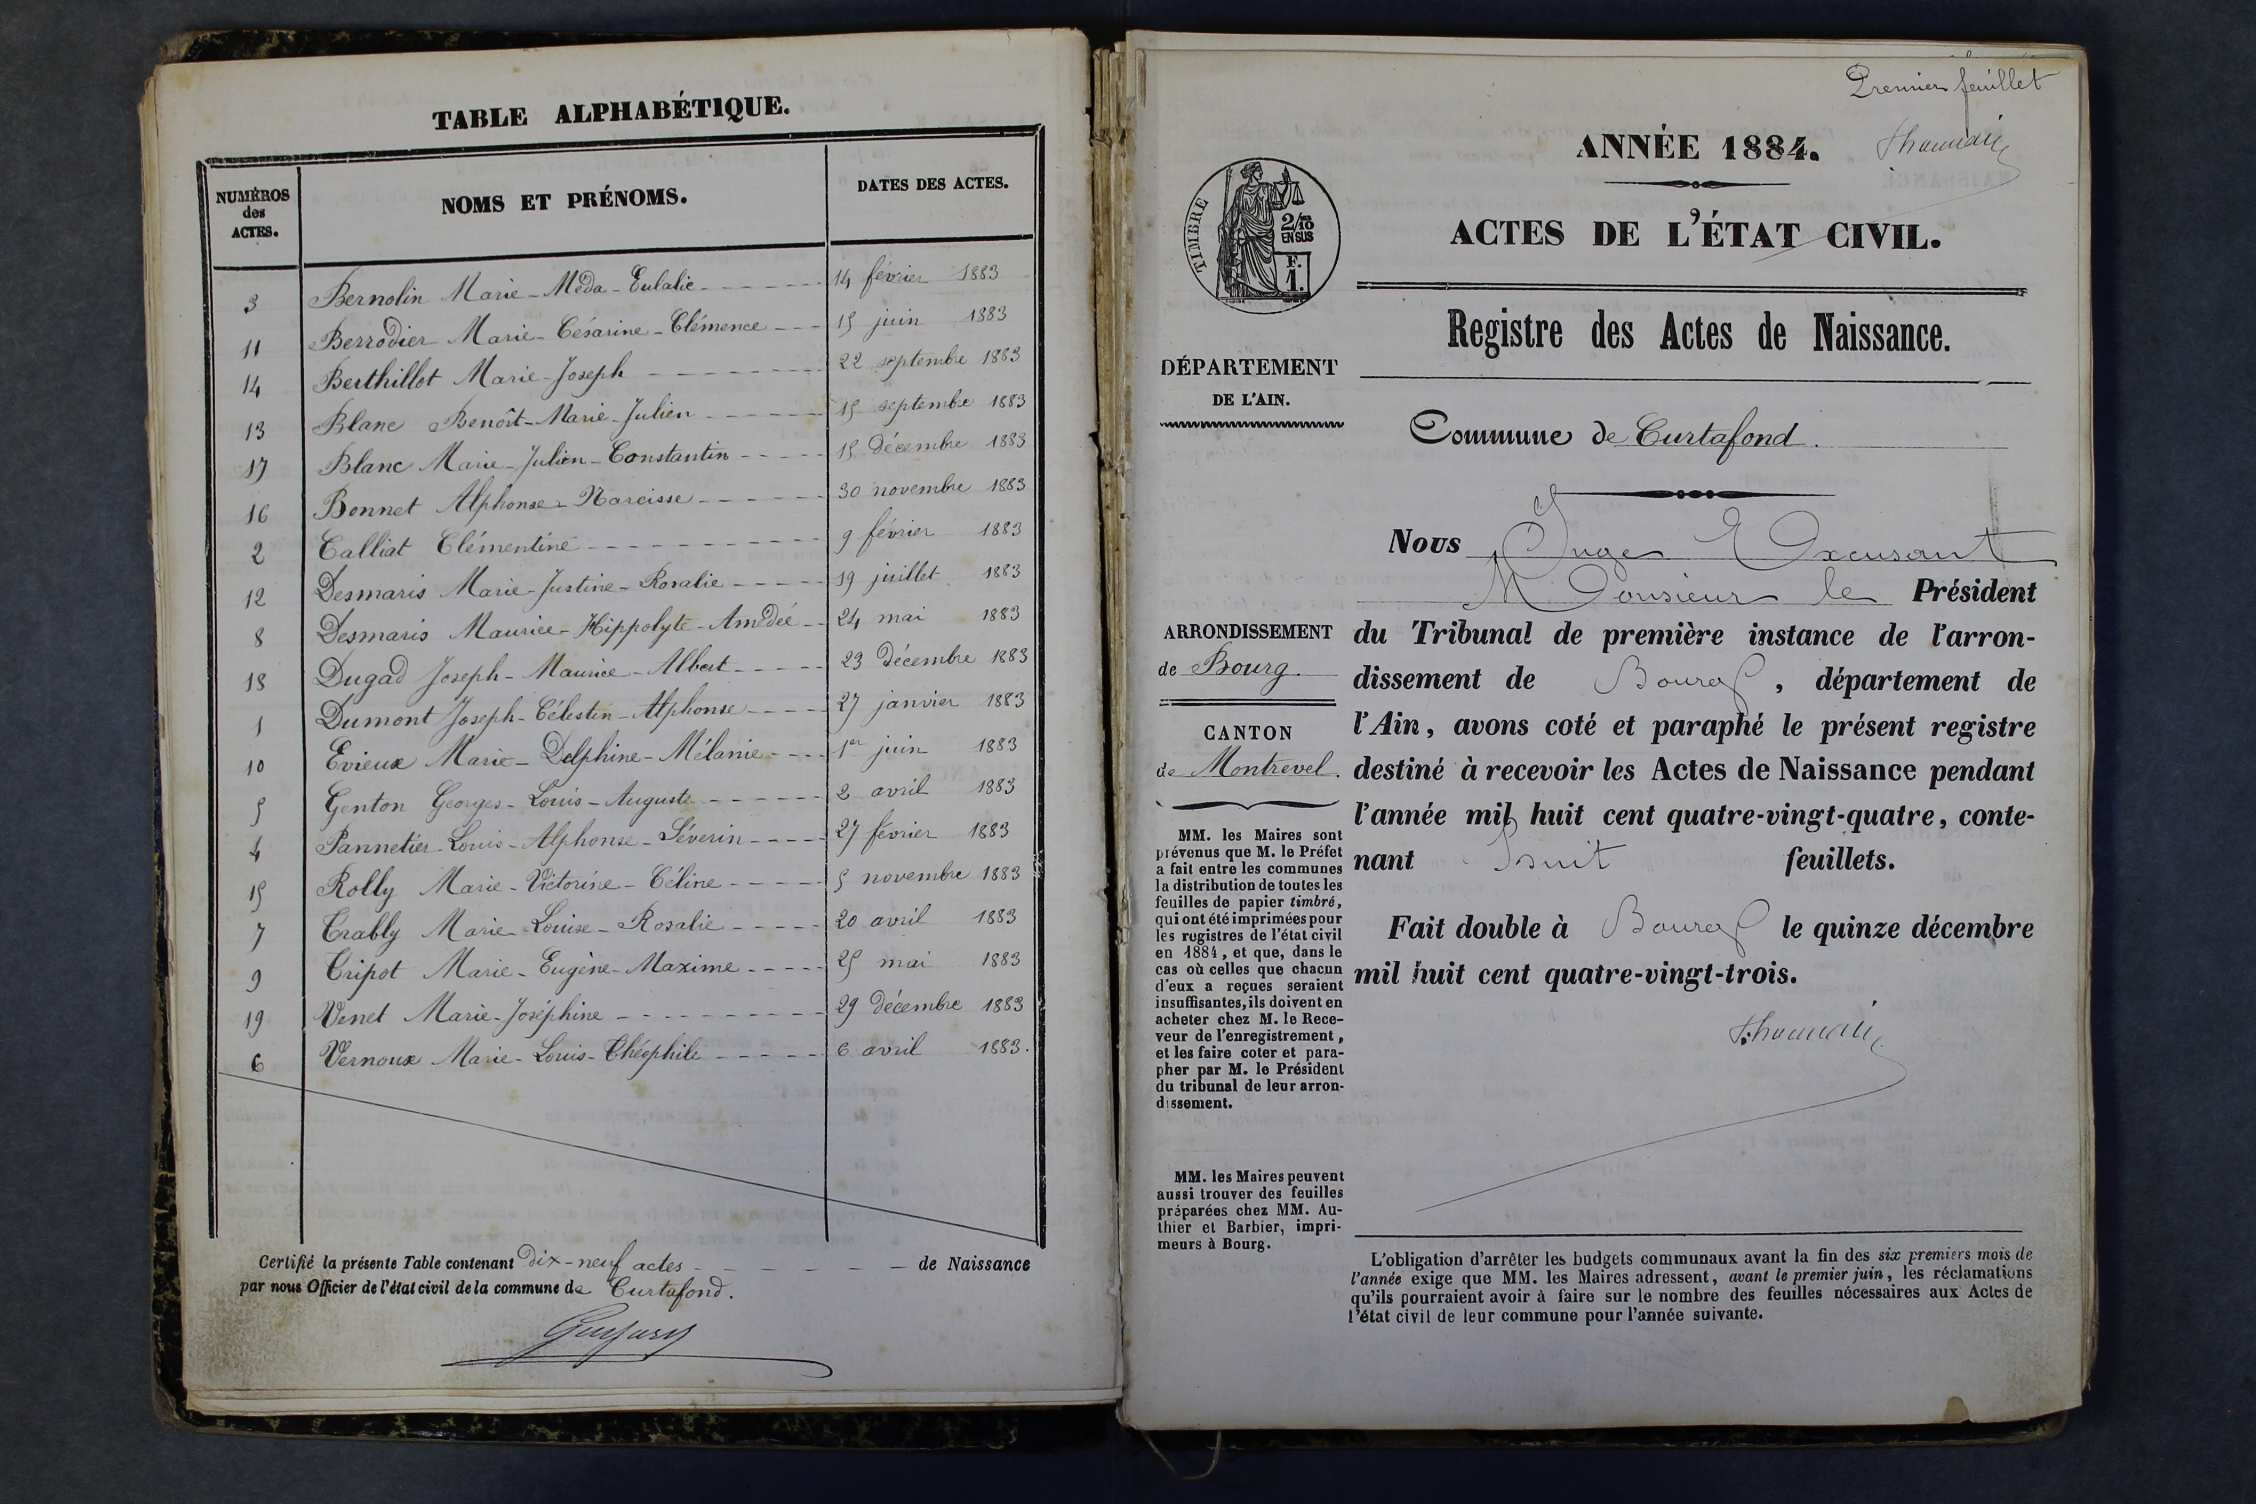 TABLE ALPHABÉTIQUE.
NUMÉROS des ACTES.
NOMS ET PRÉNOMS.
DATES DES ACTES.
3 Bernolin Marie-Méda-Eulalie 14 février 1883
11 Berrodier Marie-Césarine-Clémence 15 juin 1883
14 Berthillot Marie-Joseph 22 septembre 1883
13 Blanc Benoît-Marie-Julien 15 septembre 1883
17 Blanc Marie-Julien-Constantin 15 Décembre 1883
16 Bonnet Alphonse-Narcisse 30 novembre 1883
2 Calliat Clémentine 9 février 1883
12 Desmaris Marie-Justine-Rosalie 19 juillet 1883
8 Desmaris Maurice-Hippolyte-Amédée 24 mai 1883
18 Dugad Joseph-Maurice-Albert 23 Décembre 1883
1 Dumont Joseph-Célestin-Alphonse 27 janvier 1883
10 Evieux Marie-Delphine-Mélanie 1er juin 1883
5 Genton Georges-Louis-Auguste 2 avril 1883
4 Pannetier Louis-Alphonse-Séverin 27 février 1883
15 Rolly Marie-Victorine-Céline 5 novembre 1883
7 Trably Marie-Louise-Rosalie 20 avril 1883
9 Tripot Marie-Eugène-Maxime 25 mai 1883
19 Venet Marie-Joséphine 29 Décembre 1883
6 Vernoux Marie-Louis-Théophile 6 avril 1883.
Certifié la présente Table contenant Dix-neuf actes de Naissance
par nous Officier de l'état civil de la commune de Curtafond.
Premier feuillet
ANNÉE 1884.
TIMBRE
2/10 EN SUS
F. 1.
ACTES DE L'ÉTAT CIVIL.
Registre des Actes de Naissance.
DÉPARTEMENT
DE L'AIN.
Commune de Curtafond.
ARRONDISSEMENT
de Bourg.
CANTON
de Montrevel.
MM. les Maires sont
prévenus que M. le Préfet
a fait entre les communes
la distribution de toutes les
feuilles de papier timbré,
qui ont été imprimées pour
les registres de l'état civil
en 1884, et que, dans le
cas où celles que chacun
d'eux a reçues seraient
insuffisantes, ils doivent en
acheter chez M. le Rece-
veur de l'enregistrement,
et les faire coter et para-
pher par M. le Président
du tribunal de leur arron-
dissement.
MM. les Maires peuvent
aussi trouver des feuilles
préparées chez MM. Au-
thier et Barbier, impri-
meurs à Bourg.
Nous Juge Excusant
Monsieur le Président
du Tribunal de première instance de l'arron-
dissement de Bourg, département de
l'Ain, avons coté et paraphé le présent registre
destiné à recevoir les Actes de Naissance pendant
l'année mil huit cent quatre-vingt-quatre, conte-
nant huit feuillets.
Fait double à Bourg le quinze décembre
mil huit cent quatre-vingt-trois.
L'obligation d'arrêter les budgets communaux avant la fin des six premiers mois de
l'année exige que MM. les Maires adressent, avant le premier juin, les réclamations
qu'ils pourraient avoir à faire sur le nombre des feuilles nécessaires aux Actes de
l'état civil de leur commune pour l'année suivante.